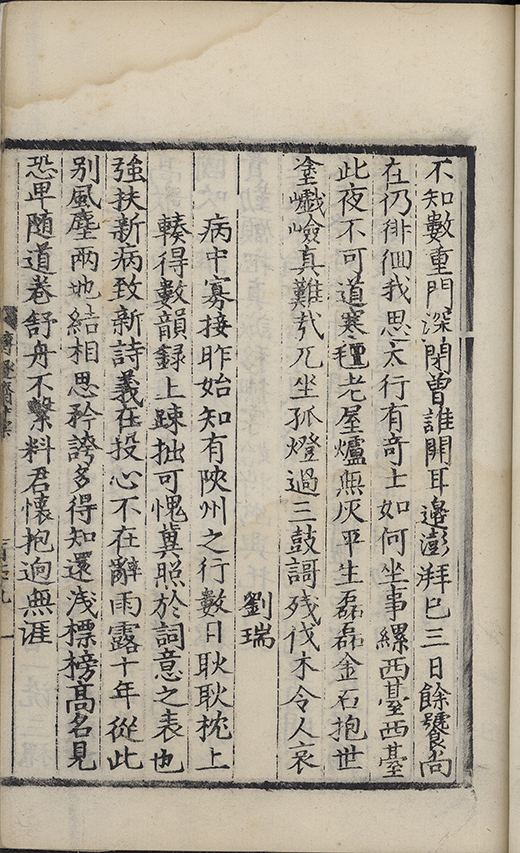 不知數重門深閉曹誰開耳邊澎湃巳三日餘饕尚
在仍徘徊我思太行有奇士如何坐事縲西臺西臺
此夜不可道寒氊老屋爐無灰平生磊磊金石抱世
塗巇嶮真難㢤兀坐孤燈過三鼓謌殘伐木令人哀
劉瑞
病中寡接昨始知有陝州之行數日耿耿枕上
輳得數韻録上踈拙可愧兾照於詞意之表也
強扶新病致新詩義在投心不在辭雨露十年從此
別風塵兩地結相思矜誇多得知還淺標榜髙名見
恐卑隨道巻舒舟不繫料君懷抱逈無涯